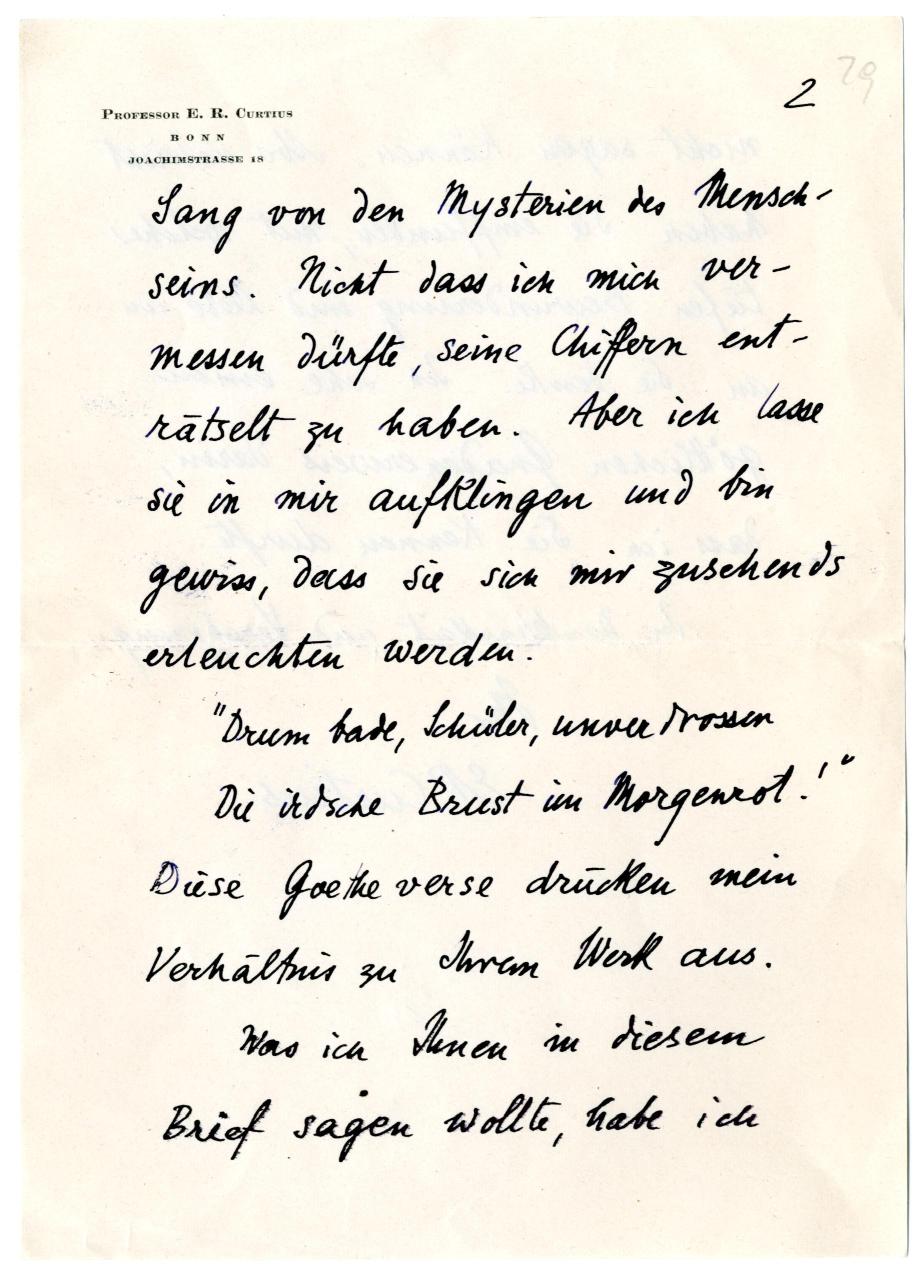 29
2
PROFESSOR E. R. CURTIUS
BONN
JOACHIMSTRASSE 18
Sang von den Mysterien des Mensch-
seins. Nicht dass ich mich ver-
messen dürfte, seine Chiffern ent-
rätselt zu haben. Aber ich lasse
sie in mir aufklingen und bin
gewiss, dass sie sich mir zusehends
erleuchten werden.
"Drum bade, Schüler, unverdrossen
Die irdsche Brust im Morgenrot!"
Diese Goetheverse drücken mein
Verhältnis zu Ihrem Werk aus.
Was ich Ihnen in diesem
Brief sagen wollte, habe ich